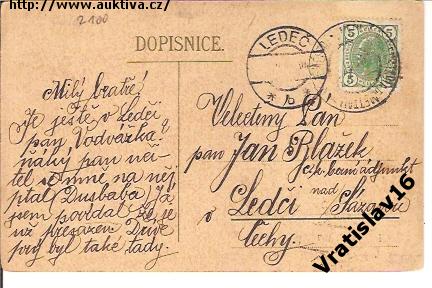 http://www.auktiva.cz/
2100
DOPISNICE.
LEDEČ
5
5
5
5
Milý bratře!
Je ještě v Ledči
pan Vodvážka
nějaký pan uči-
tel se mně na něj
ptal Dusbaba) Já
jsem povídal že je
už přesazen. Dříve
prý byl také tady.
Velectěný Pan
pan Jan Blažek
c.k. berní adjunkt
v Ledči nad Sázavou
Čechy.
Vratislav16